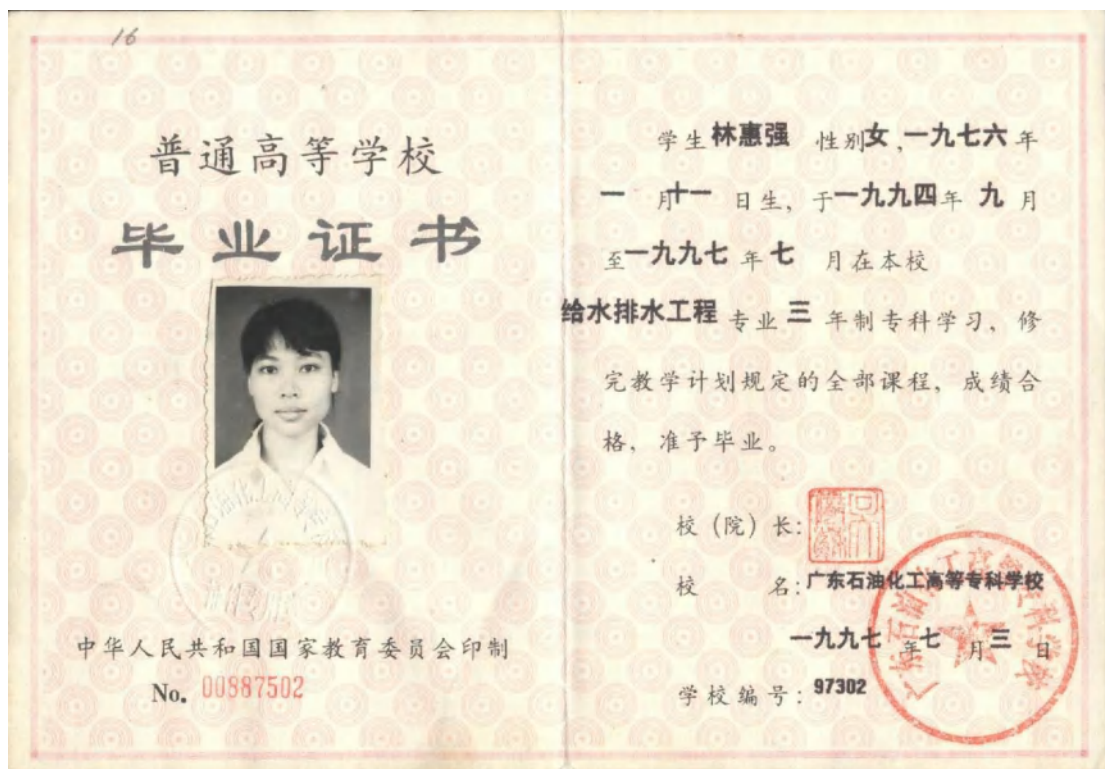 16
普通高等学校
毕业证书
中华人民共和国国家教育委员会印制
No. 00887502
学生林惠强 性别女,一九七六年
一月十一日生,于一九九四年九月
至一九九七年七月在本校
给水排水工程专业三年制专科学习,修
完教学计划规定的全部课程,成绩合
格,准予毕业。
校(院)长:
校名:广东石油化工高等专科学校
一九九七年七月三日
学校编号:97302
广东石油化工高等专科学校